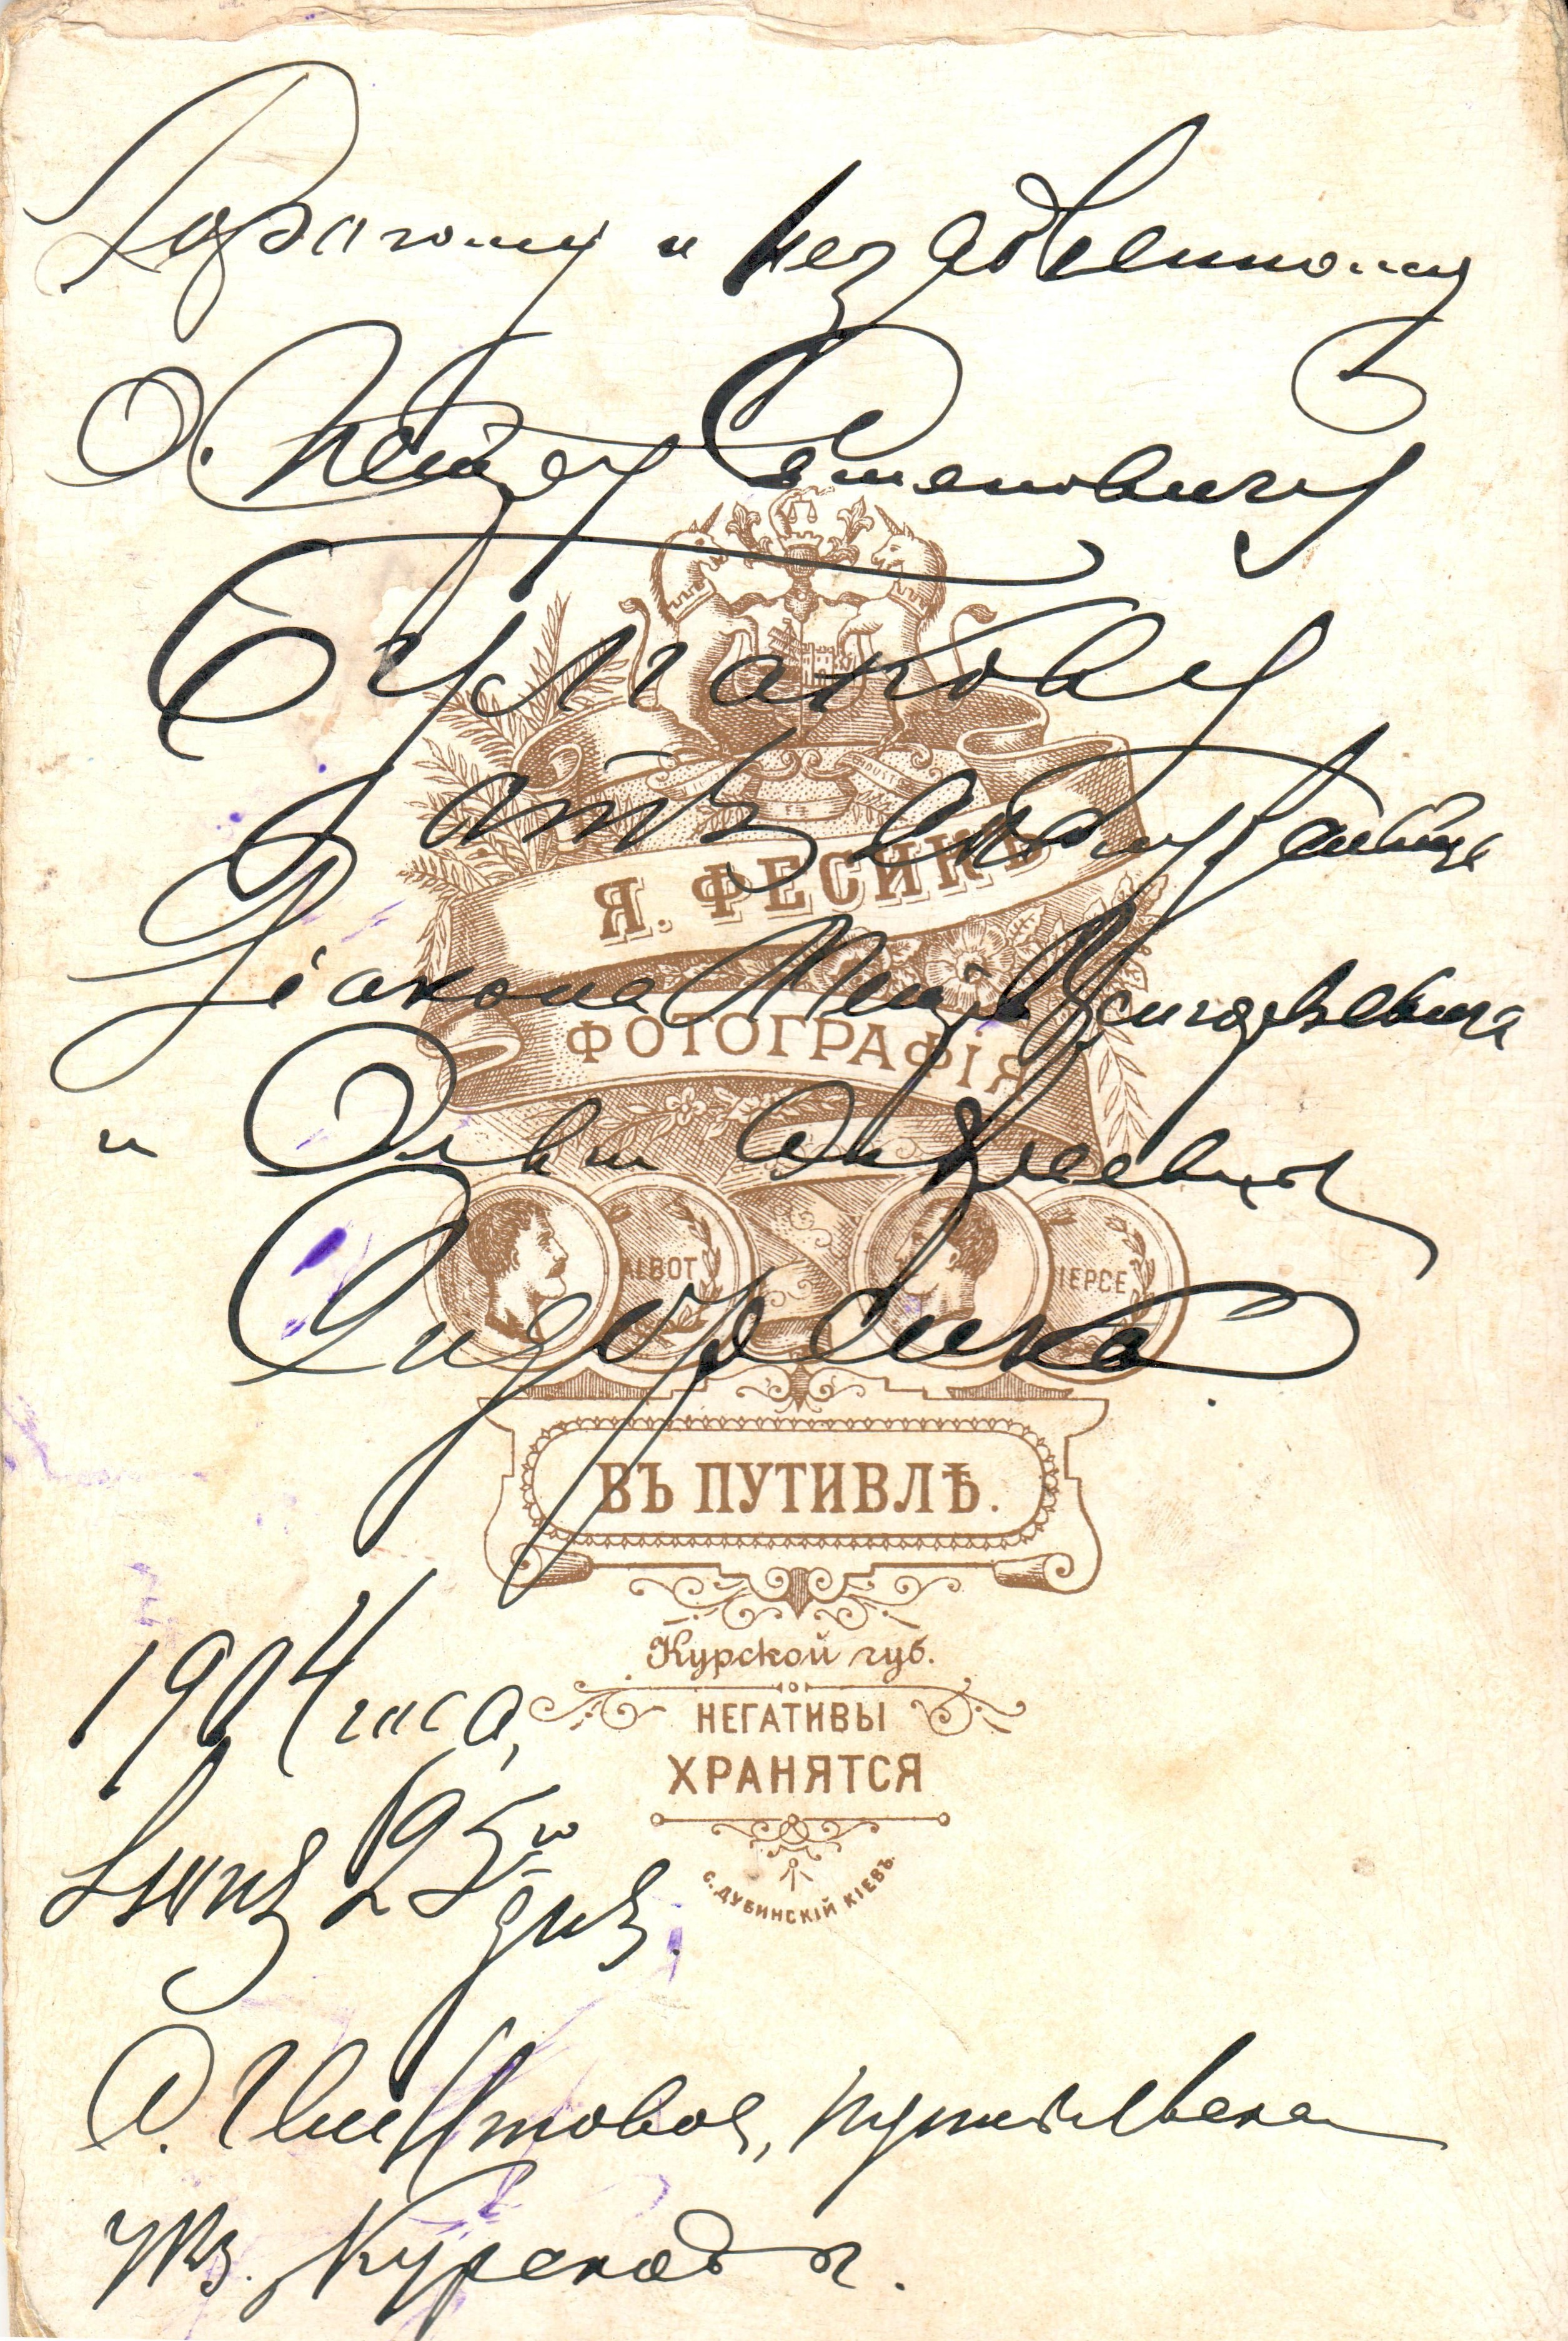 Дорогому и незабвенному
О. Петру Степановичу
Булгакову
отъ
Діакона Петра Григорьевича
и Ольги Андреевны
Сидоренко
Я. ФЕСИКЪ
ФОТОГРАФІЯ
ВЪ ПУТИВЛѢ.
Курской губ.
НЕГАТИВЫ
ХРАНЯТСЯ
С. ДУБИНСКІЙ КІЕВЪ.
1904 года,
25го
дня.
Путивльска
уѣз. Курской г.